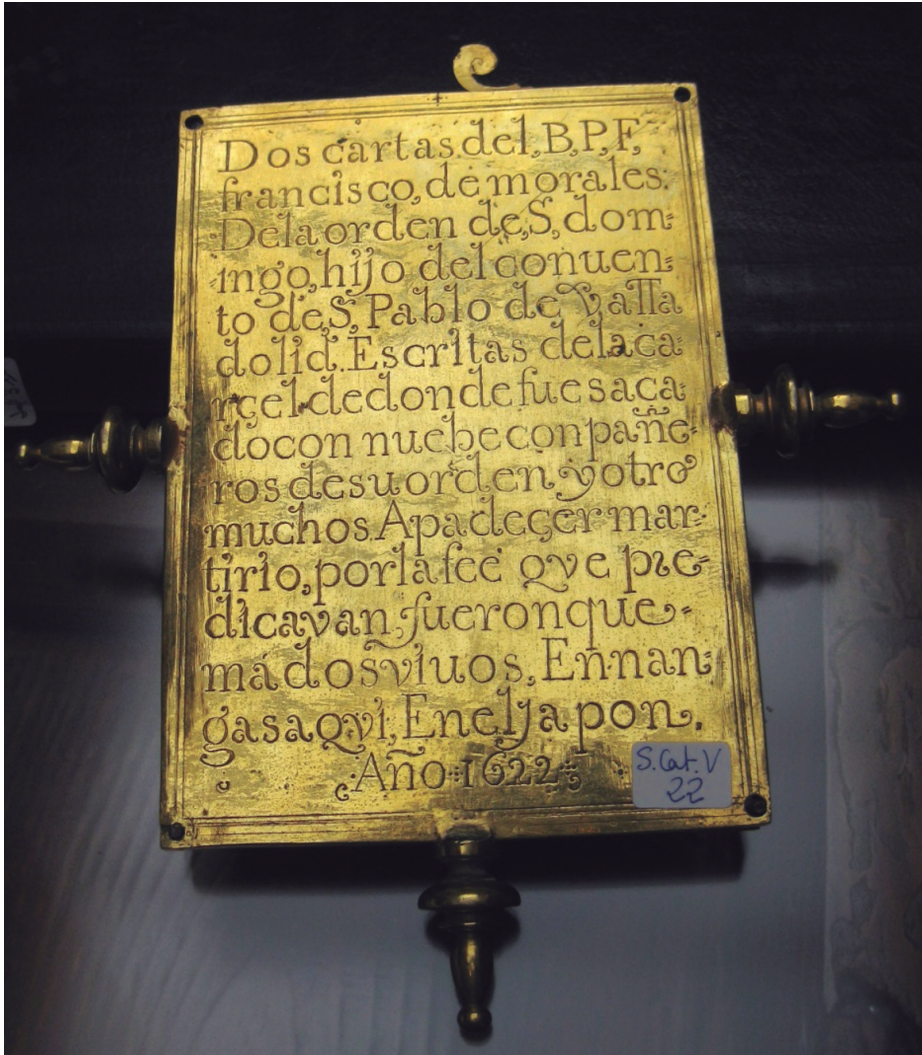 Dos cartas.del,B,P,F,
francisco,de morales.
Dela orden de,S,dom=
ingo,hijo del conuen=
to de,S,Pablo de Valla
dolid.Escritas delaca
rçel dedonde fue saca
do con nuebe conpañe=
ros desu orden y otro
muchos Apadeçer mar=
tirio,porla fee que pre=
dicavan,fueron que=
mados viuos,En nan=
gasaqvi,Enel Japon.
Año 1622
S.Cat.V
22